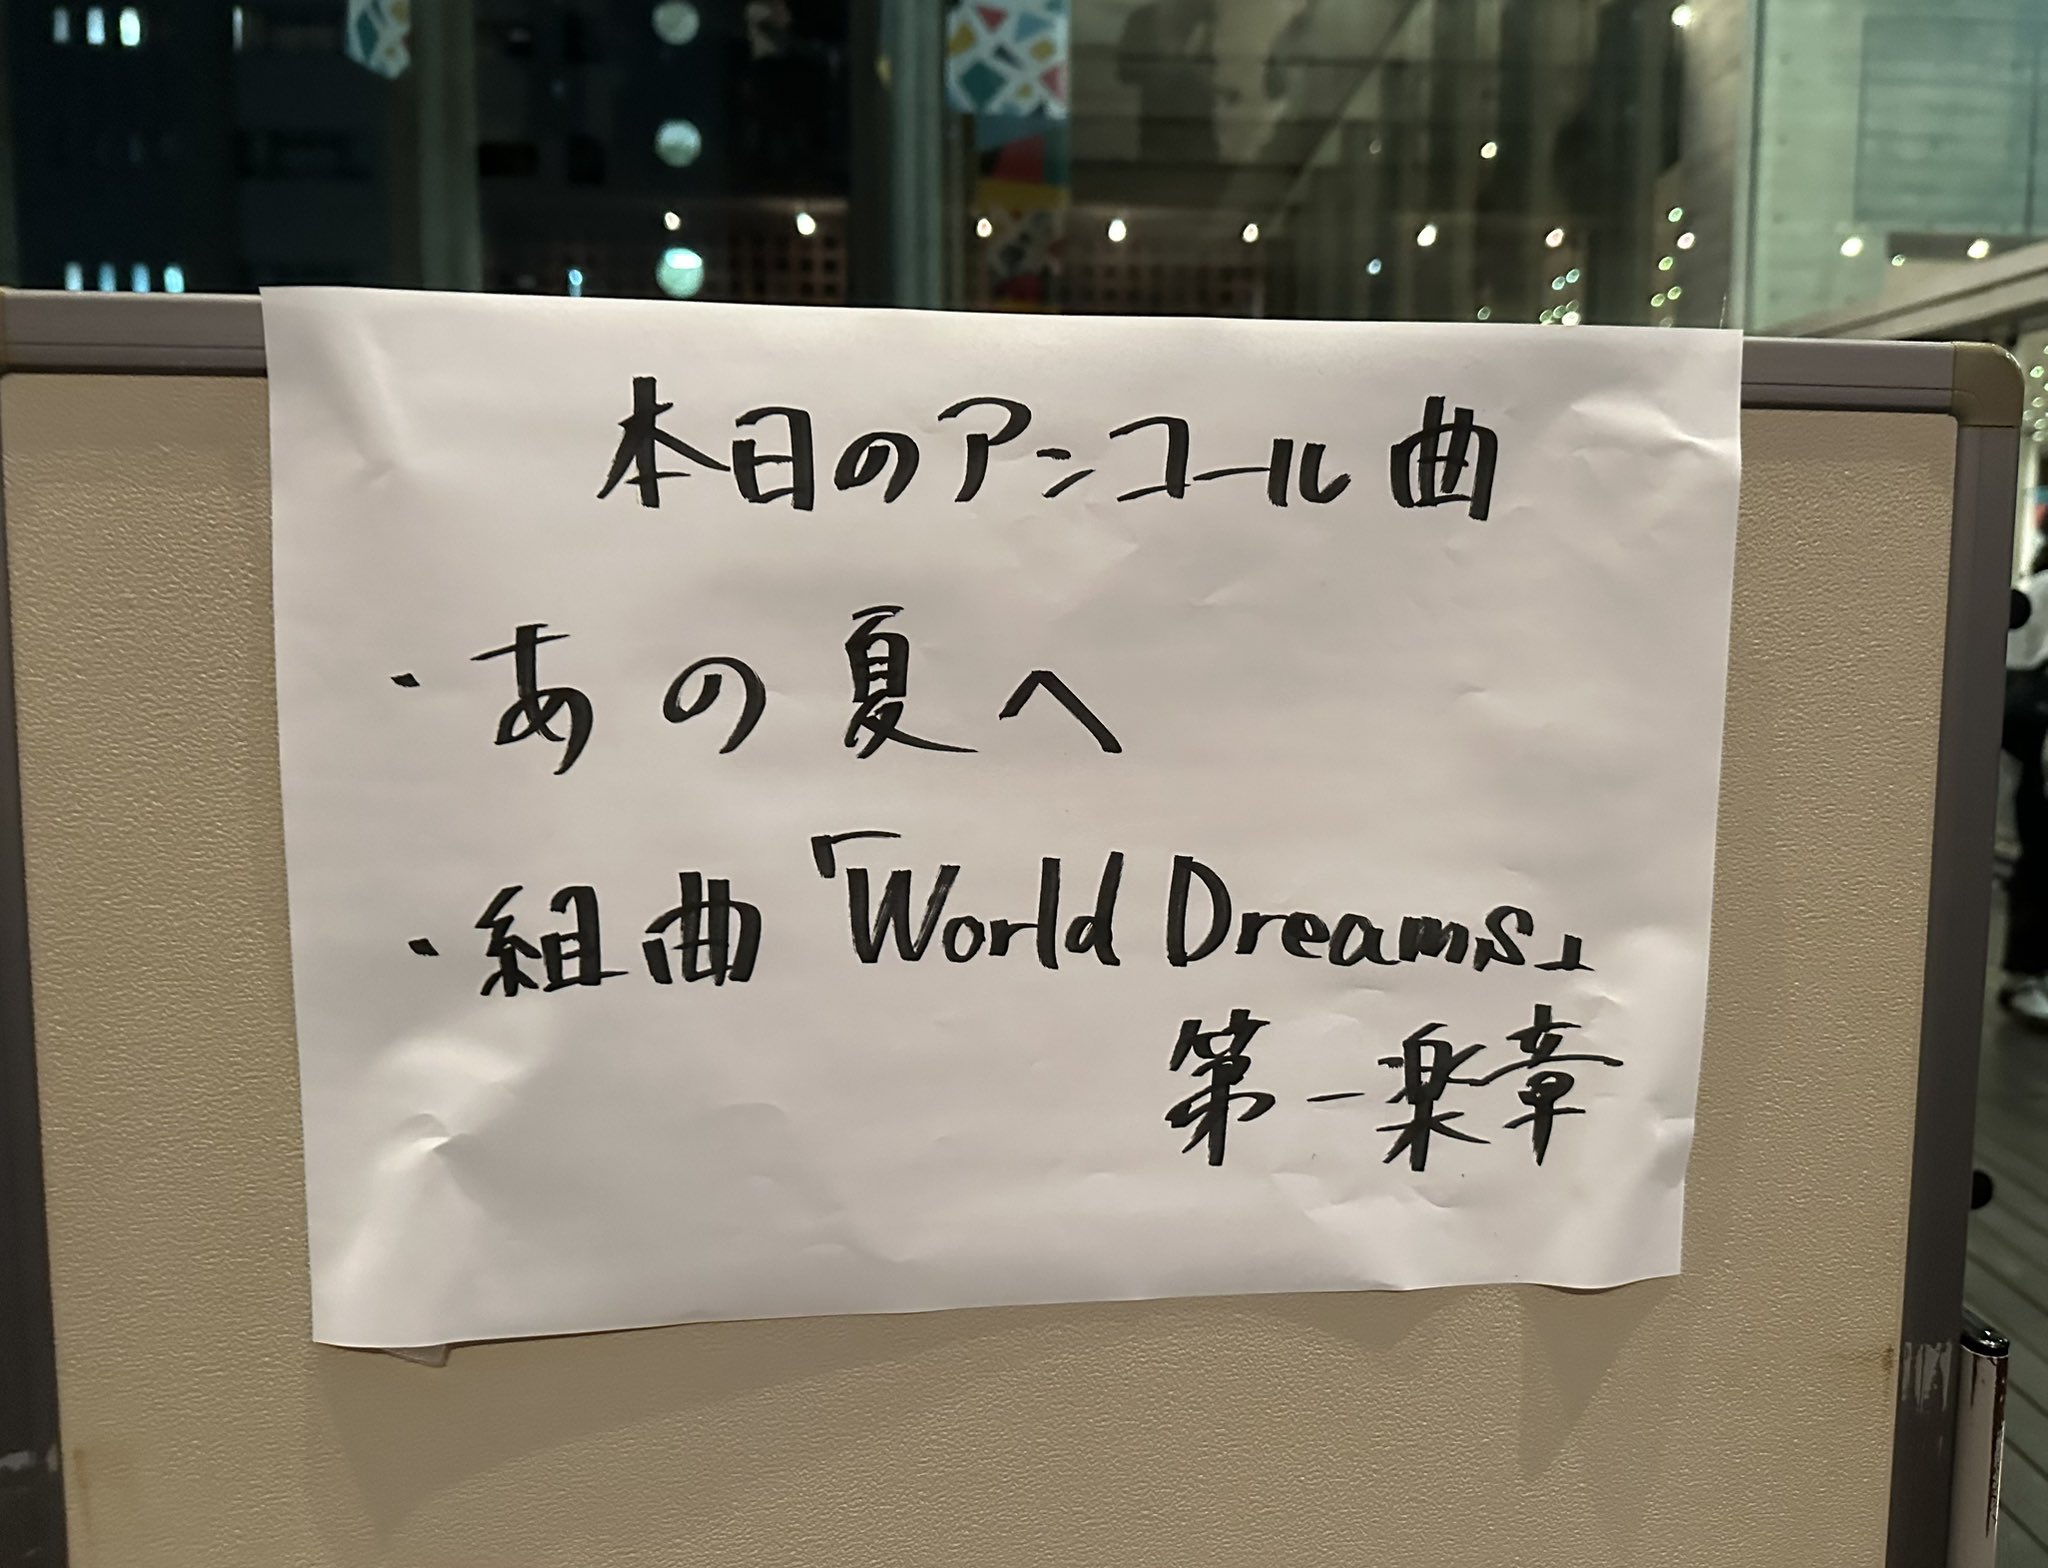 本日のアンコール曲
・あの夏へ
・組曲「World Dreams」
第一楽章